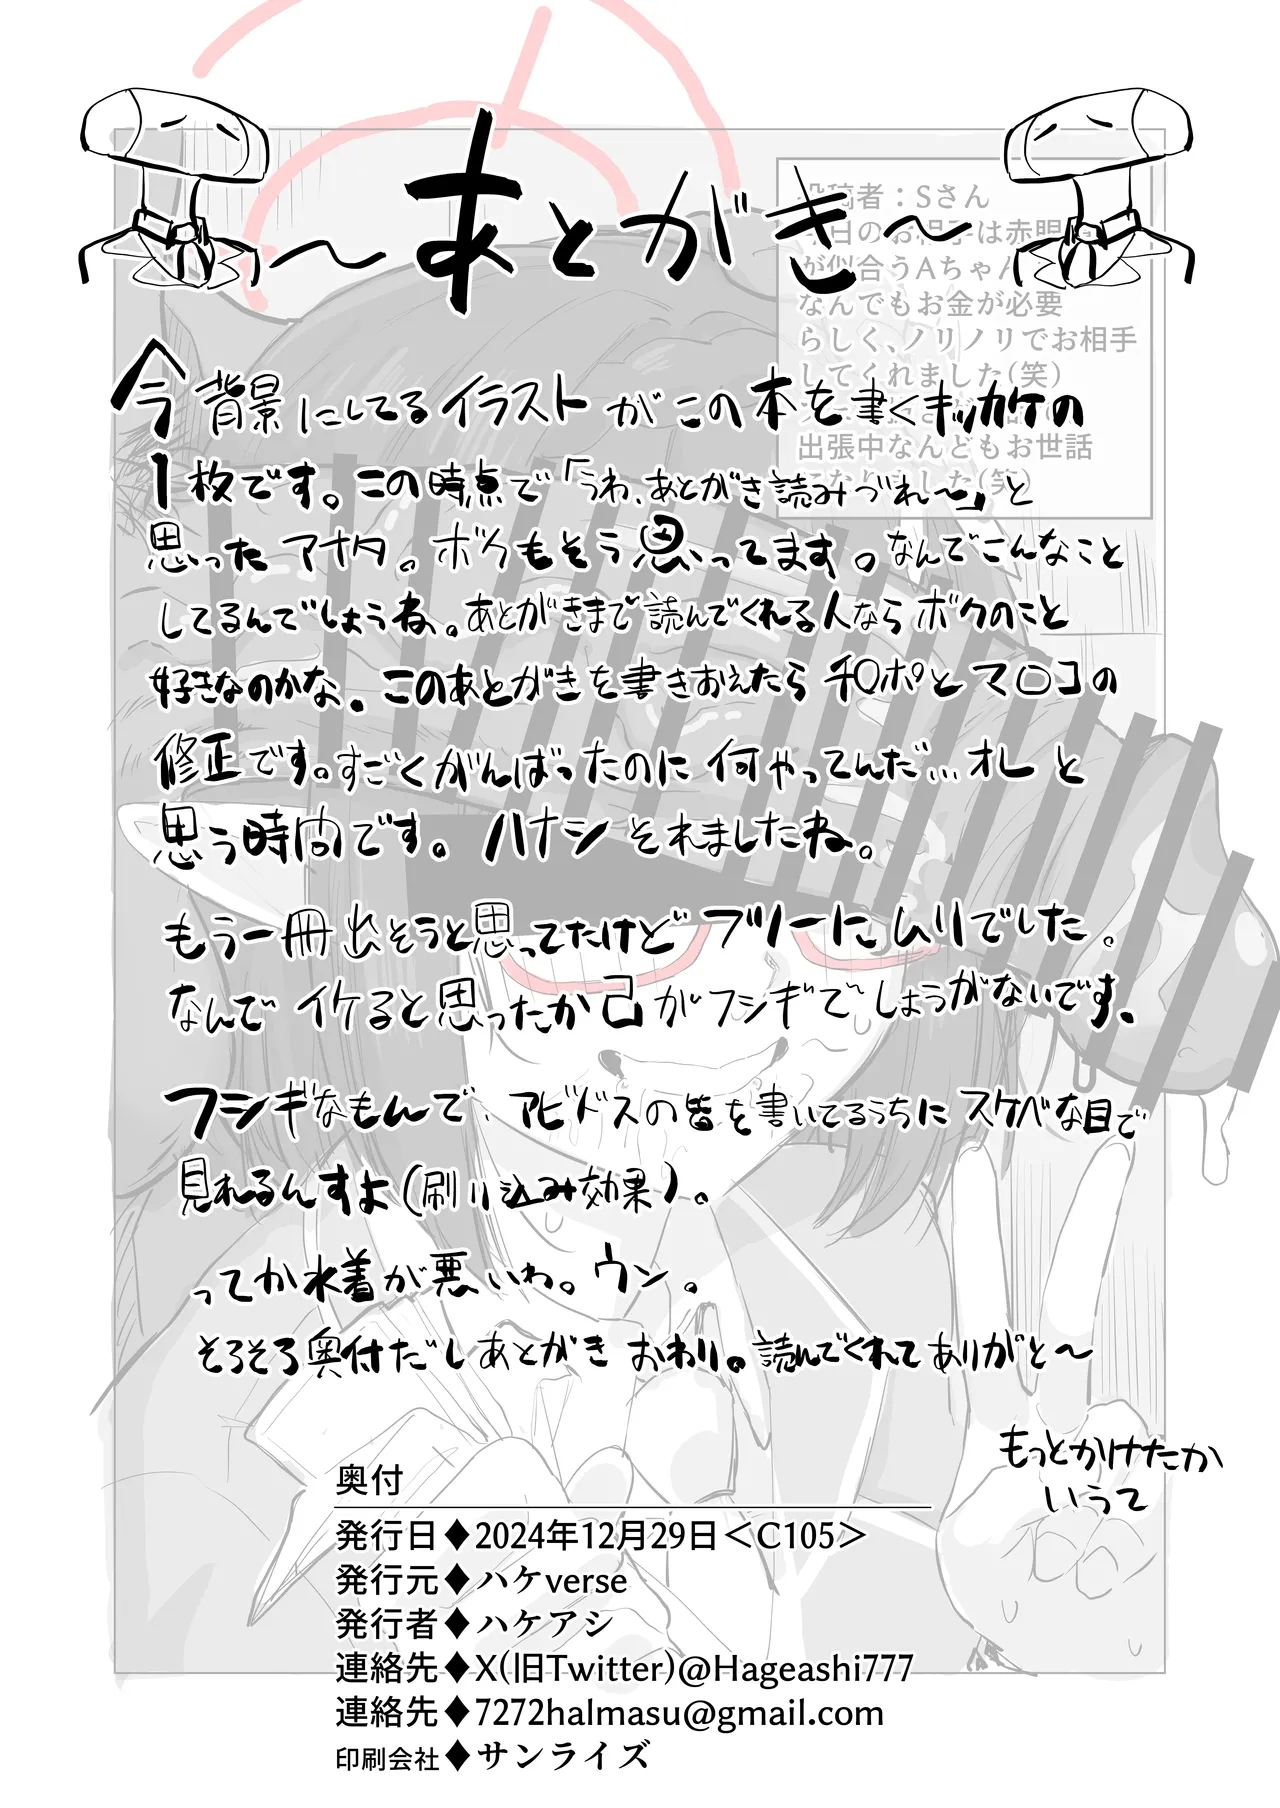 ～あとがき～
投稿者：Sさん
今日のお相手は赤眼鏡
が似合うAちゃん
なんでもお金が必要
らしく、ノリノリでお相手
してくれました(笑)
出張中なんどもお世話
になりました(笑)
今背景にしてるイラストがこの本を書くキッカケの
1枚です。この時点で「うわ、あとがき読みづれ～」と
思ったアナタ。ボクもそう思ってます。なんでこんなこと
してるんでしょうね。あとがきまで読んでくれる人ならボクのこと
好きなのかな。このあとがきを書きおえたらチ○ポとマ○コの
修正です。すごくがんばったのに何やってんだ…オレと
思う時間です。ハナシそれましたね。
もう一冊出そうと思ってたけどフツーにムリでした。
なんでイケると思ったか己がフシギでしょうがないです。
フシギなもんで、アビドスの皆を書いてるうちにスケベな目で
見れるんすよ(刷り込み効果)。
ってか水着が悪いわ。ウン。
そろそろ奥付だしあとがきおわり。読んでくれてありがと～
もっとかけたか
いうて
奥付
発行日♦2024年12月29日＜C105＞
発行元♦ハケverse
発行者♦ハケアシ
連絡先♦X(旧Twitter)@Hageashi777
連絡先♦7272halmasu@gmail.com
印刷会社♦サンライズ